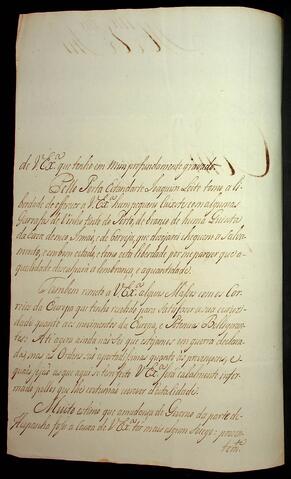 de V. Ex.ª que tenho em mim profundamente gravado.
Pello Porta Estandarte Joaquim Leite tomo a li-
berdade de offerecer a V. Ex.ª hum pequeno Caixote com algumas
Garrafas de Vinho tinto do Porto, de branco de huma Quinta
da Caza de meo Irmaõ, e de Cerveja, que dezejarei cheguem a salva-
mento, e em bom estado, e tomo esta liberdade por me parecer que a
qualidade desculpará a lembrança, e a quantidade.
Tambem remeto a V. Ex.ª alguns Massos com os Cor-
reios da Europa que tenho recebido para satisfazer a sua curiozi-
dade quanto aos movimentos da Europa, e Potencias Belligeran-
tes: Até agora ainda nos sei que estejamos em guerra declara-
da, mas as Ordens nos aportaõ humas quantas prevençoens, e
quaes sejaõ as que aqui se tem feito V. Ex.ª será cabalmente infor-
mado pellos que lhes costumaõ escrever d'esta Cidade.
Muito estimo que a mudança de Governo da parte de
Hespanha fosse a cauza de V. Ex.ª ter mais algum socego; proven-